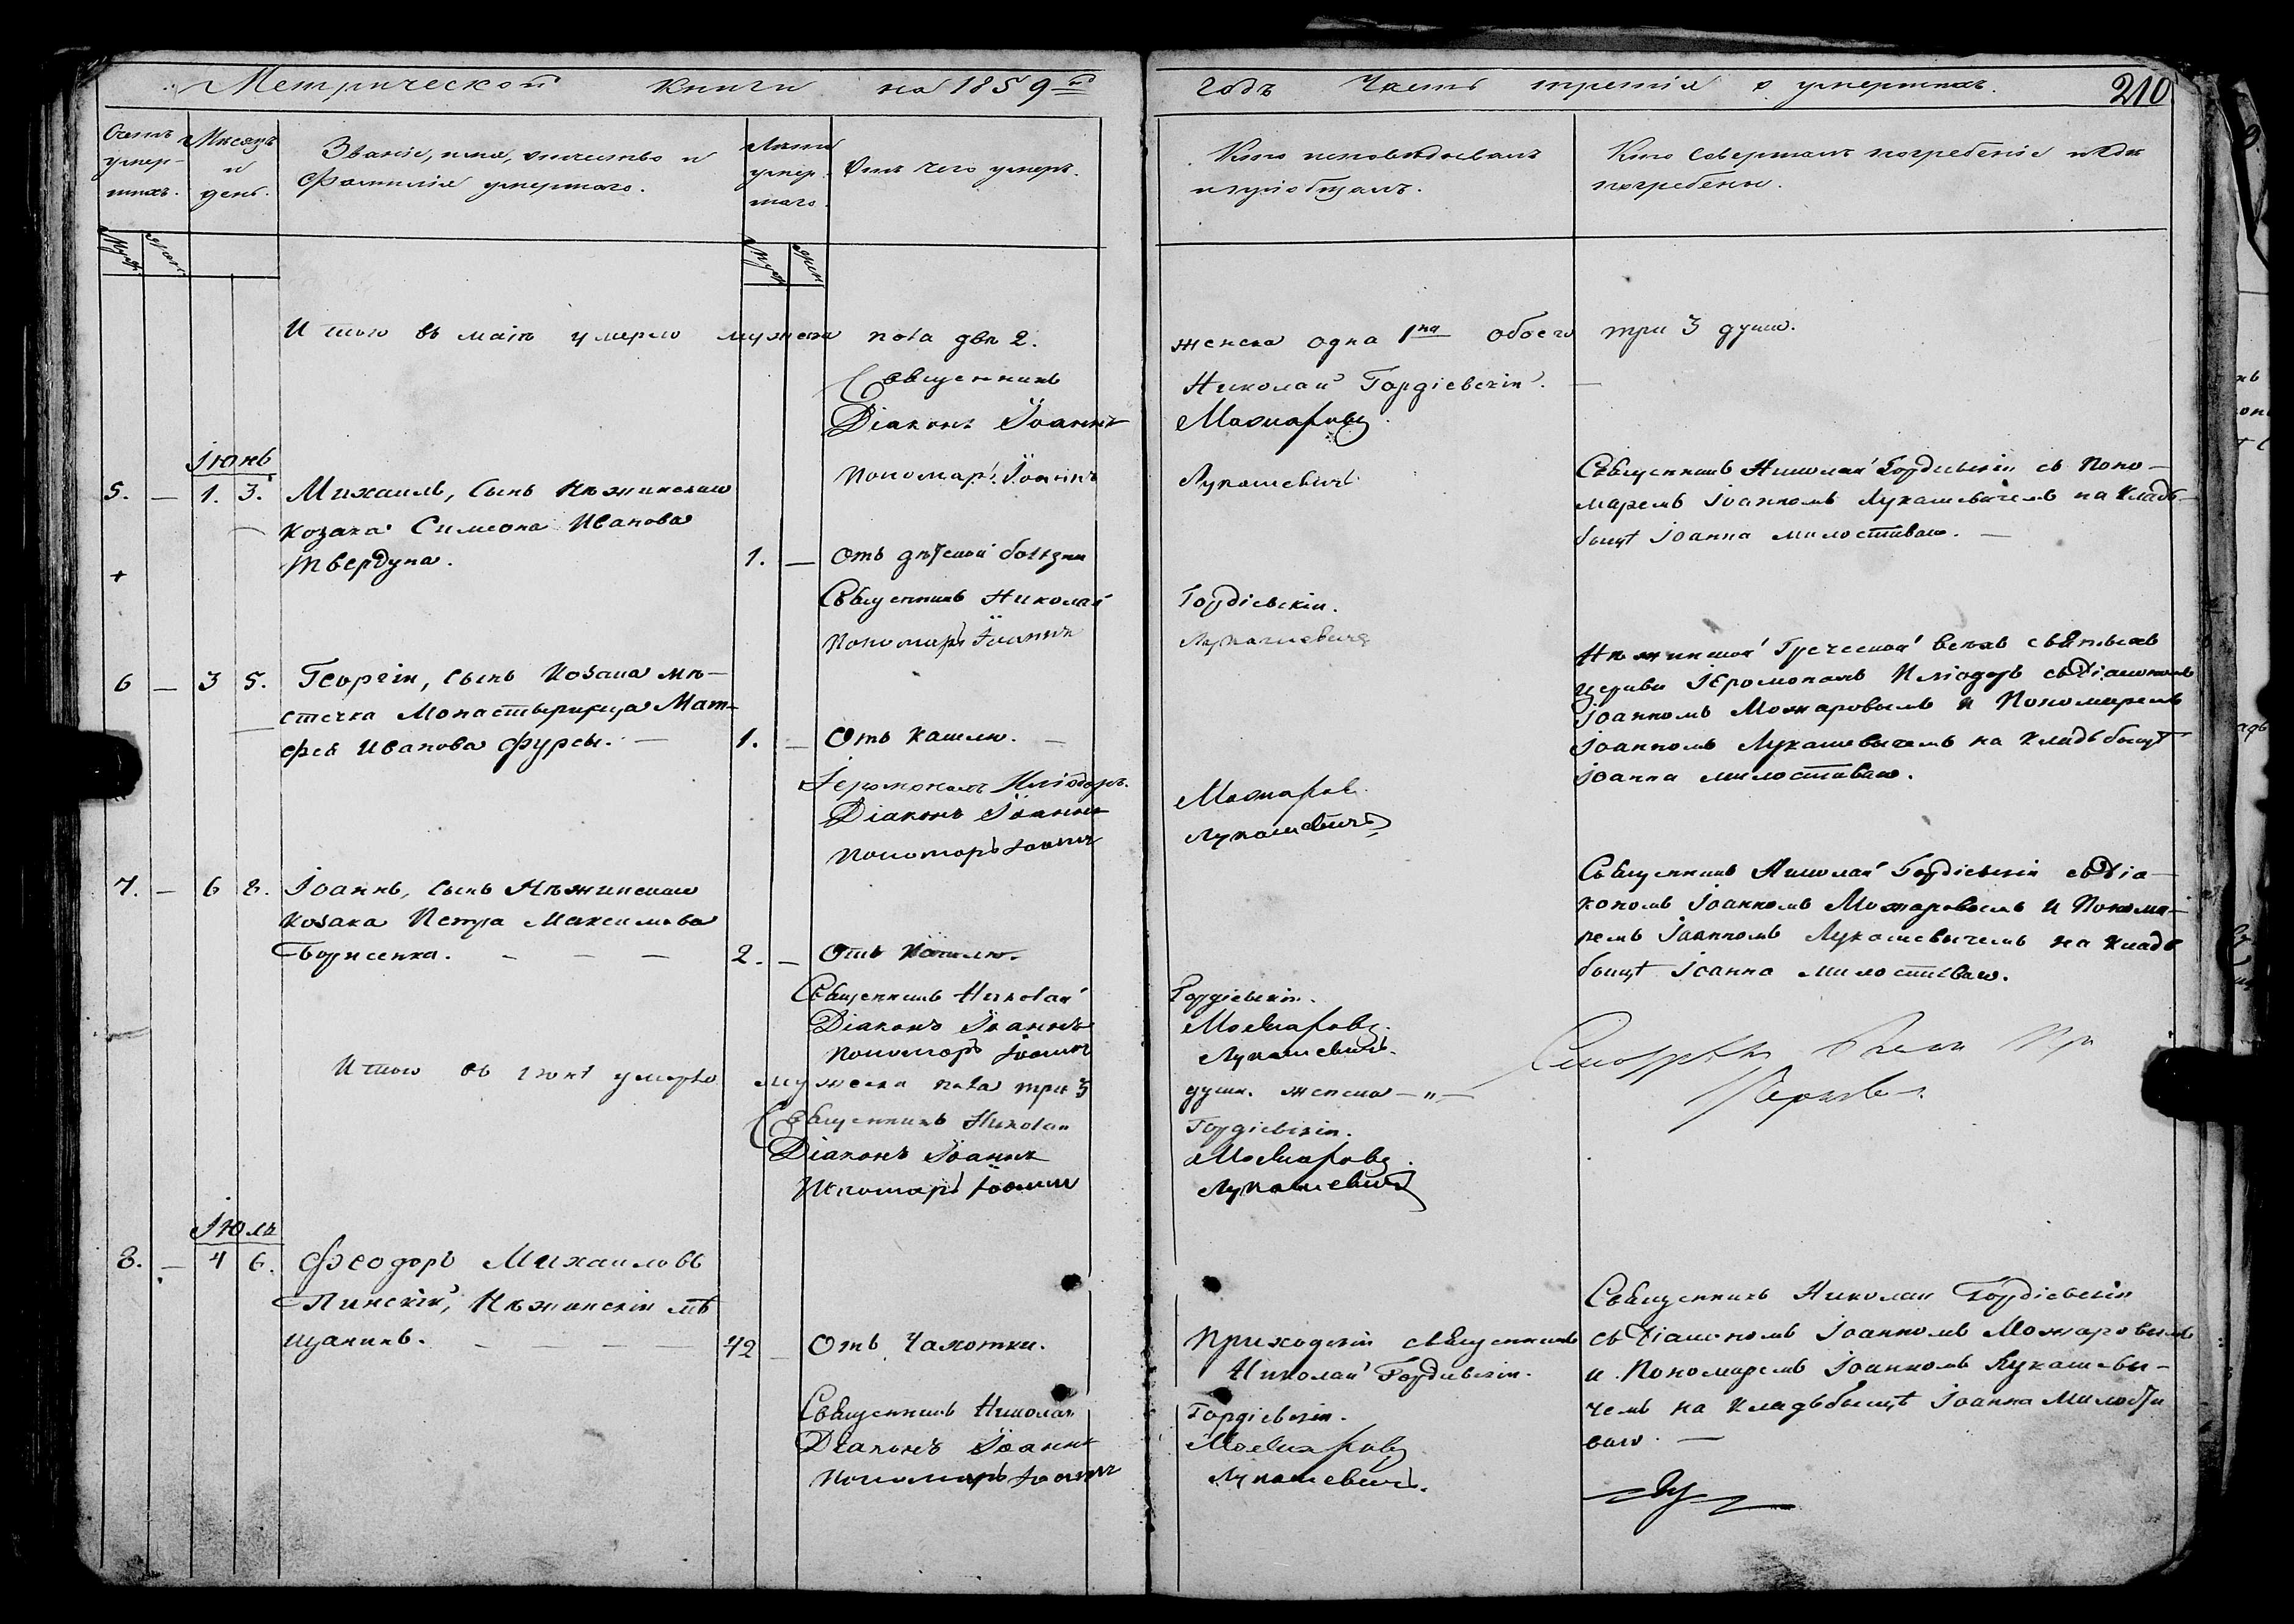 Метрической книги на 1859й годъ Часть третія о умершихъ. 210
Счетъ умер- шихъ. Мѣсяцъ и день. Званіе, имя, отчество и фамилія умершаго. Лѣта умер- шаго. Отъ чего умеръ. Кто исповѣдывалъ и пріобщалъ. Кто совершалъ погребеніе и гдѣ погребены.
Муж. Жен. Муж. Жен.
Итого въ маіѣ умерло мужеска пола два 2. женска одна 1на обоего три 3 души.
Священникъ Николай Гордіевскій.
Діаконъ Іоаннъ Можаровъ
Пономарь Іоаннъ Лукашевичъ
Іюнь
5. — 1. 3. Михаилъ, сынъ Нѣжинскаго
козака Симеона Иванова
Твердуна.
1. — Отъ дѣтской болѣзни
Священникъ Николай Гордіевскій съ Поно-
маремъ Іоанномъ Лукашевичемъ на Кладъ-
бищѣ Іоанна милостиваго. —
Священникъ Николай Гордіевскій.
Пономарь Іоаннъ Лукашевичъ
6 — 3 5. Георгій, сынъ Козака мѣ-
стечка Монастырища Мат-
фея Иванова Фурсы. —
1. — Отъ кашлю. —
Нѣжинской Греческой всѣхъ святыхъ
церкви Іеромонахъ Иліодоръ съ Діакономъ
Іоанномъ Можаровымъ и Пономаремъ
Іоанномъ Лукашевичемъ на Кладъбищѣ
Іоанна милостиваго.
Іеромонахъ Иліодоръ.
Діаконъ Іоаннъ Можаровъ
Пономарь Іоаннъ Лукашевичъ
7. — 6 8. Іоаннъ, сынъ Нѣжинскаго
козака Петра Максимова
Борисенка. — — —
2. — Отъ Кашлю.
Священникъ Николай Гордіевскій съ Діа-
кономъ Іоанномъ Можаровымъ и Понома-
ремъ Іоанномъ Лукашевичемъ на Кладъ
бищѣ Іоанна Милостиваго.
Священникъ Николай Гордіевскій.
Діаконъ Іоаннъ Можаровъ.
Пономарь Іоаннъ Лукашевичъ.
Итого въ іюнѣ умерло мужеска пола три 3 души. женска — „ —
Священникъ Николай Гордіевскій.
Діаконъ Іоаннъ Можаровъ.
Пономарь Іоаннъ Лукашевичъ
Іюль
8. — 4 6. Феодоръ Михаиловъ
Пинскій, Нѣжинскій мѣ
щанинъ. — — — —
42 — Отъ Чахотки.
Приходскій священникъ
Николай Гордіевскій.
Священникъ Николай Гордіевскій
съ Діакономъ Іоанномъ Можаровымъ
и Пономаремъ Іоанномъ Лукашеви-
чемъ на Кладъбищѣ Іоанна Милости
ваго. —
Священникъ Николай Гордіевскій.
Діаконъ Іоаннъ Можаровъ
Пономарь Іоаннъ Лукашевичъ.